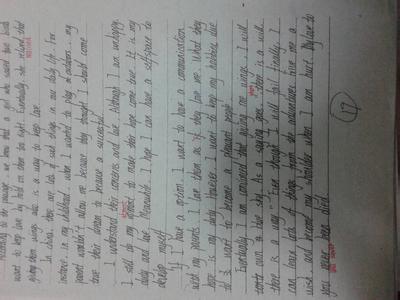 According to the passage, we know that a girl who saved two birds
want to keep love by hold on them too tight. Eventually she relized that
realized
giving them wings also is a way to keep love.
In China, there are lots of such things in our daily life. For
instance, in my childhood, when I wanted to play the outdoors, my
parents wouldn't allow me because they thought I should come
true their dream to because a successful.
I understand their concerns and love. Although I am unhappy,
I still do my to make this hope come true. It is my
duty and love. Meanwhile, I hope I can have a selfspace to
develop myself.
If I have a option, I want to have a communication
with my parents. I love them as if they love me. What they
hope is my duty. However, I want to keep my hobbies due
to I want to become a pleasant people.
Eventually, I am convinced that giving me wings, I will
own a blue sky. As a saying goes, there is a will
there is a way. Even though I will fail finally, I
can have lots of things from the. have me a
wise and become my shoulder when I am hurt. My love to
you never
17